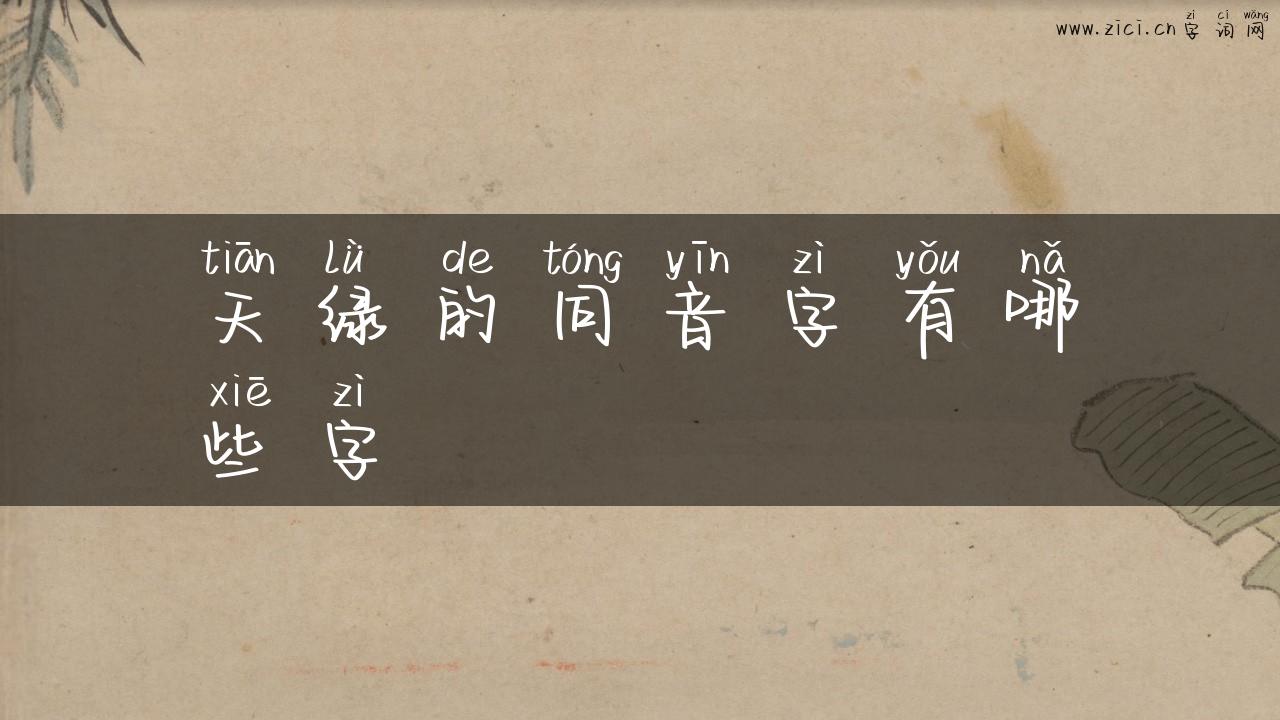 zì cí wǎng
www.zici.cn 字 词 网
tiān lǜ de tóng yīn zì yǒu nǎ
天 绿 的 同 音 字 有 哪
xiē zì
些 字